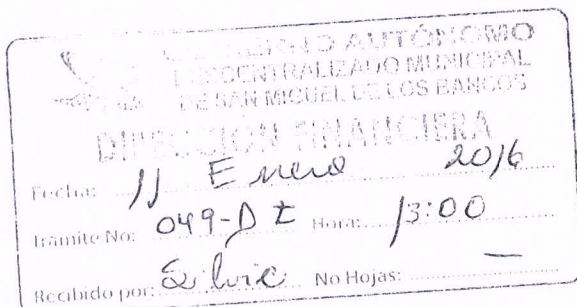 GOBIERNO AUTÓNOMO
DESCENTRALIZADO MUNICIPAL
DE SAN MIGUEL DE LOS BANCOS
DIRECCIÓN FINANCIERA
Fecha: 11 Enero 2016
Trámite No: 049-D Hora: 13:00
Recibido por: Silvic No Hojas: —